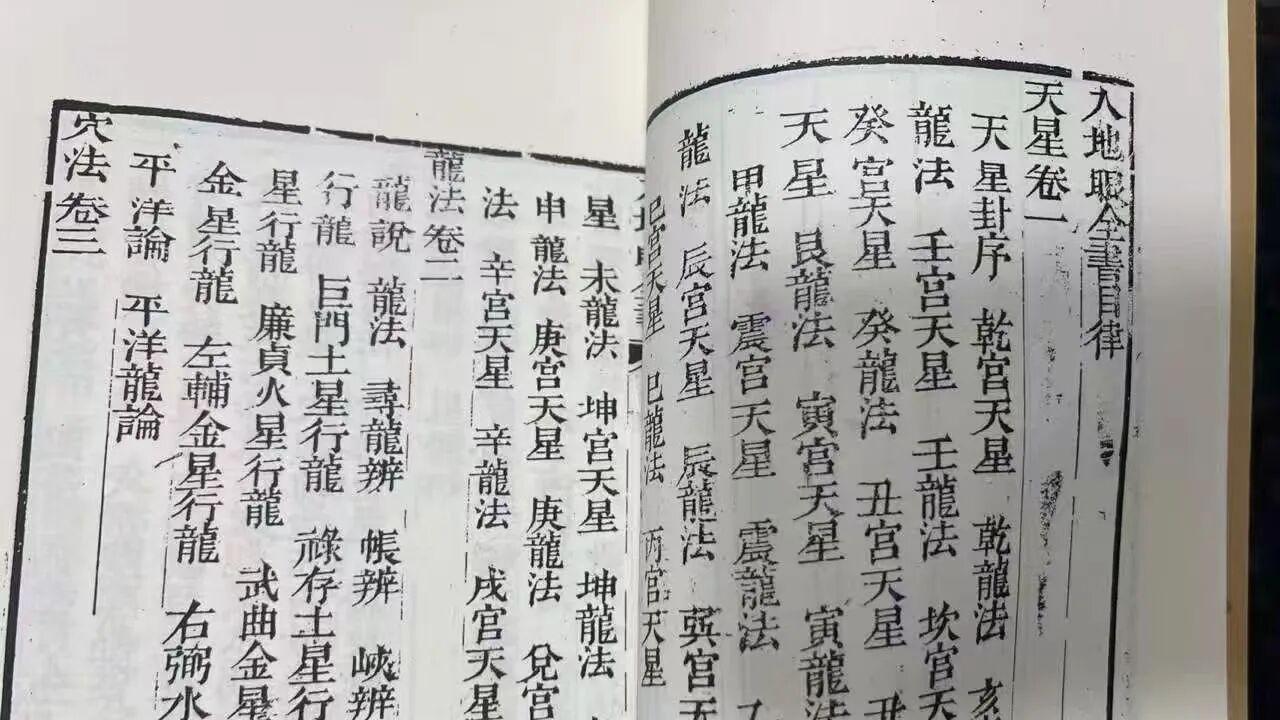 入地眼全書目律
天星卷一
天星封序 乾宫天星 乾龍法 亥
龍法 壬宫天星 壬龍法 坎宫天
癸宫天星 癸龍法 丑宫天星 丑
天星 艮龍法 寅宫天星 寅龍法
甲龍法 震宫天星 震龍法 乙
龍法 辰宫天星 辰龍法 巽宫天
巳宫天星 巳龍法 丙宫天星
星 未龍法 坤宫天星 坤龍法
申龍法 庚宫天星 庚龍法 兌宫
法 辛宫天星 辛龍法 戌宫天星
龍法卷二
龍說 龍法 尋龍辨 帳辨 峽辨
行龍 巨門土星行龍 祿存土星行
星行龍 廉貞火星行龍 武曲金星
金星行龍 左輔金星行龍 右弼水
平洋論 平洋龍論
穴法卷三